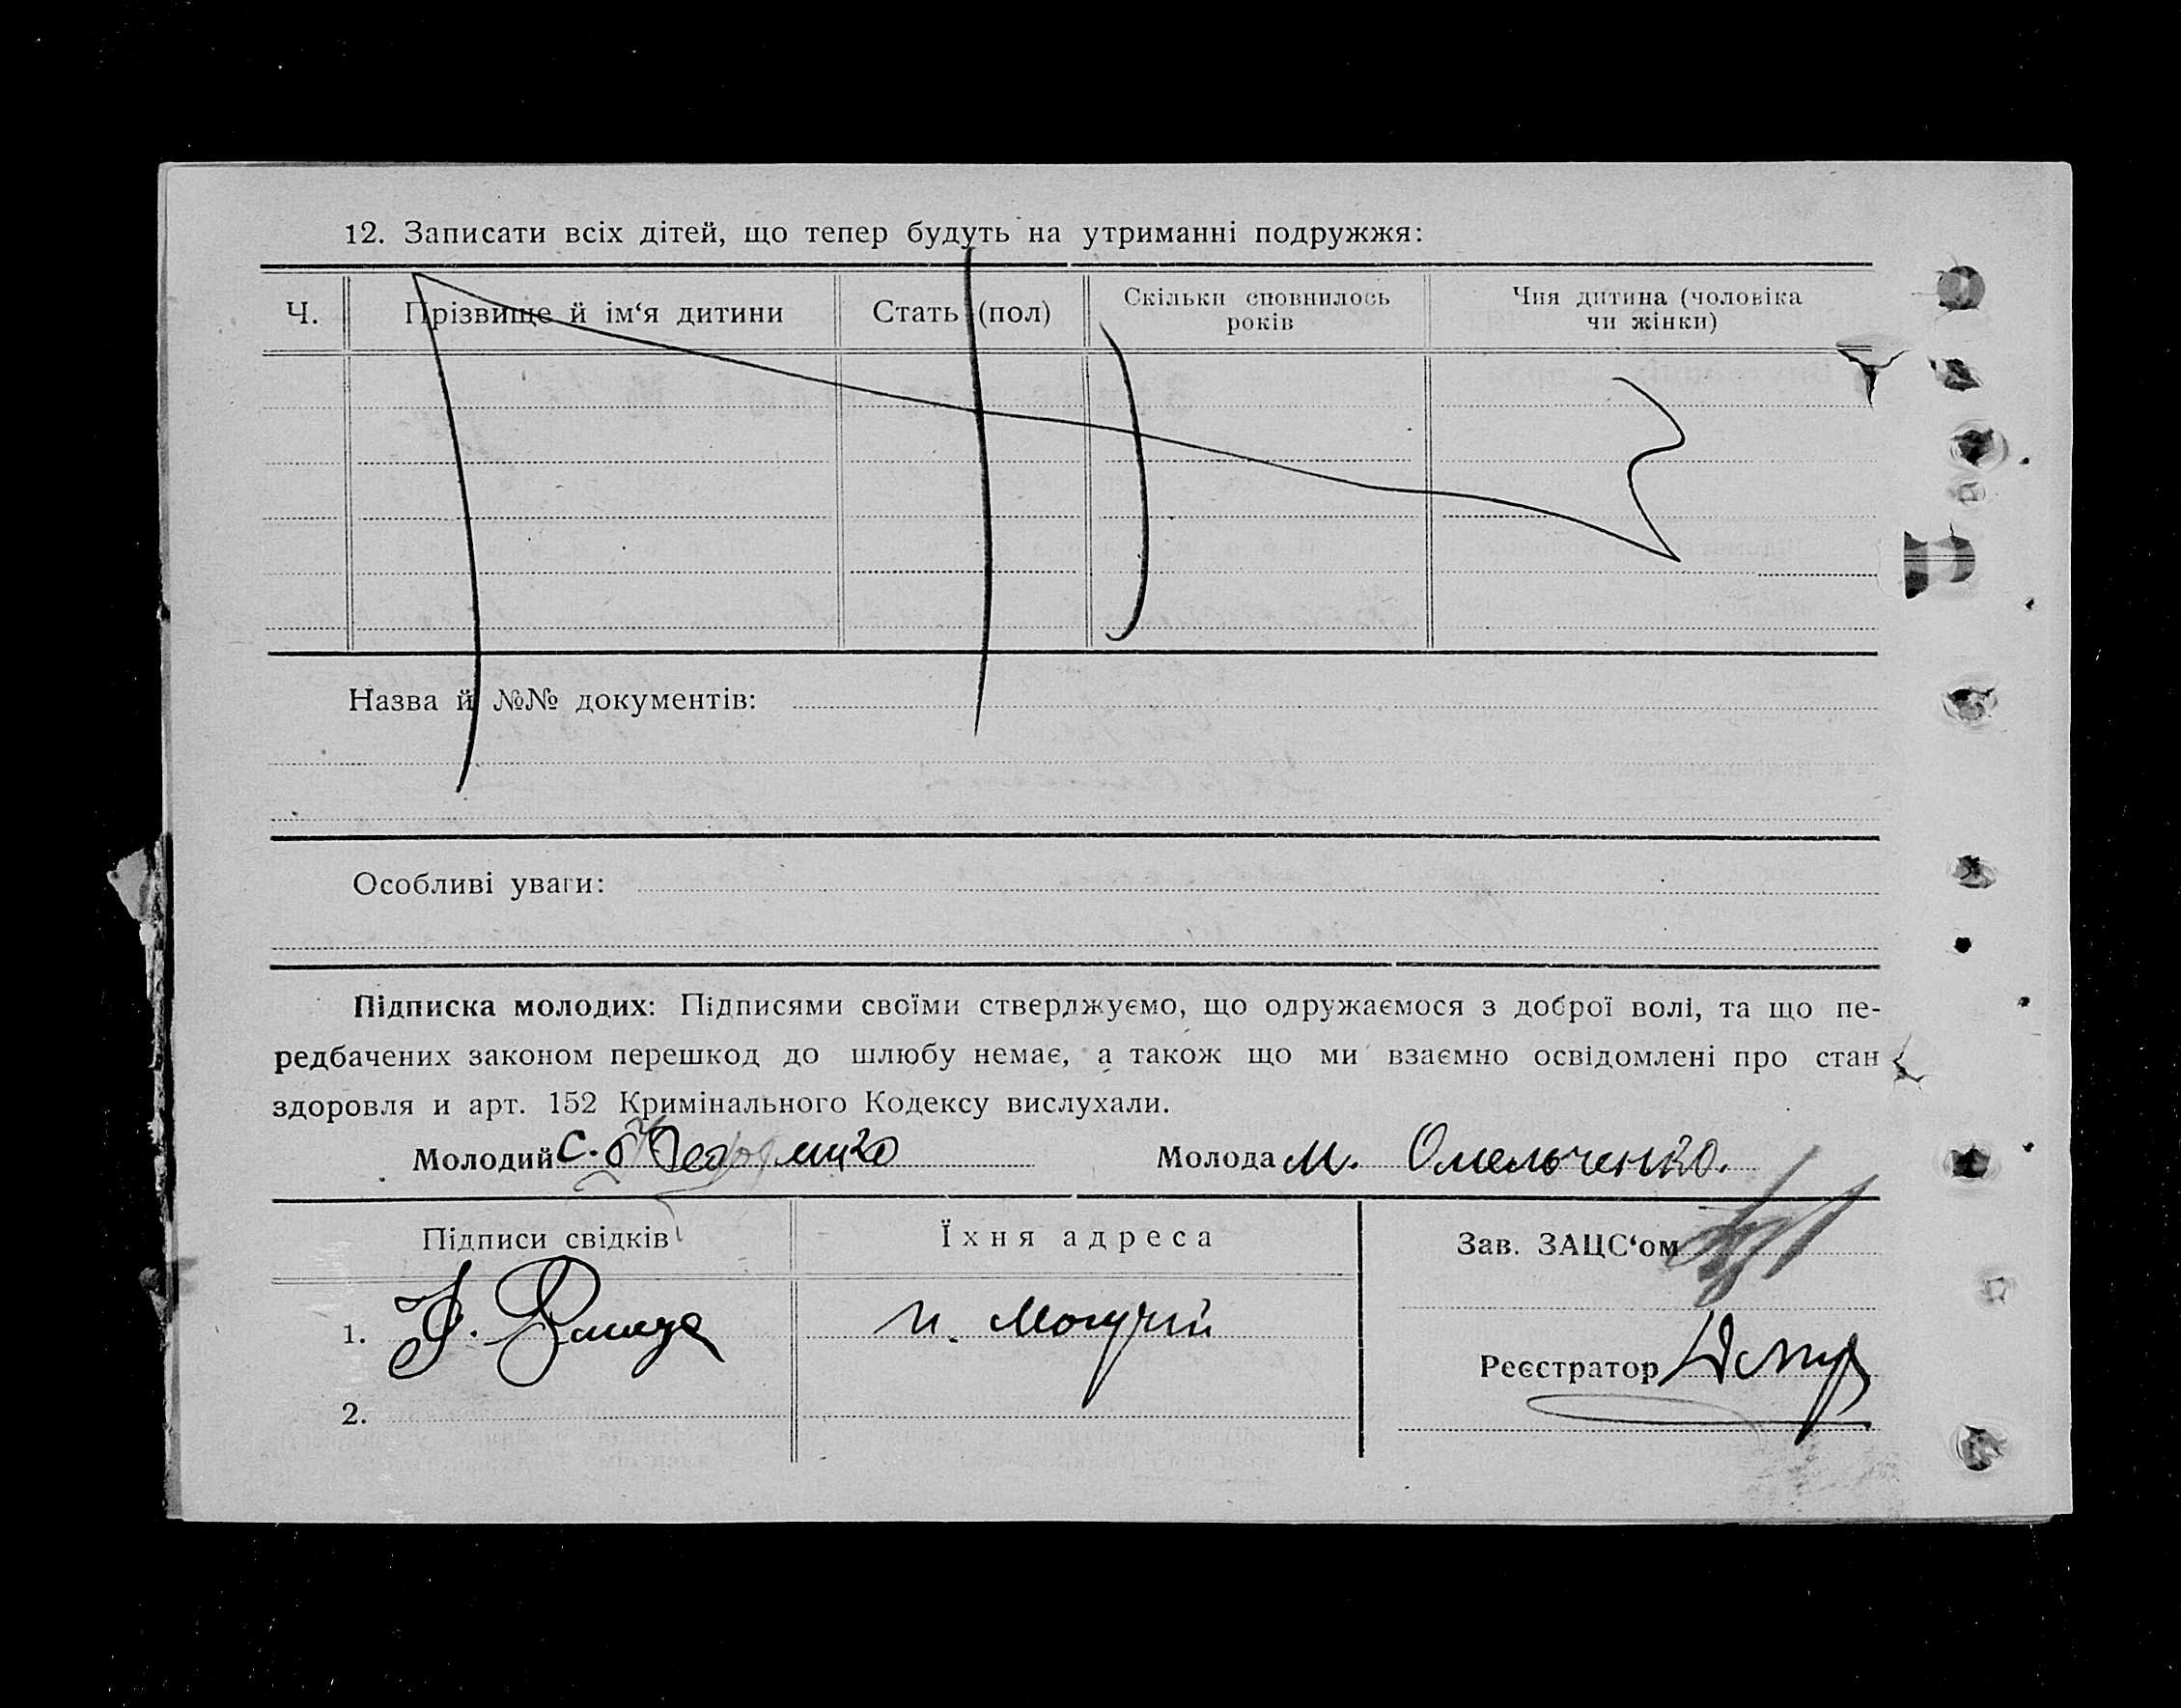 12. Записати всіх дітей, що тепер будуть на утриманні подружжя:
Ч. Прізвище й ім‘я дитини Стать (пол) Скільки сповнилось років Чия дитина (чоловіка чи жінки)
Назва й №№ документів:
Особливі уваги:
Підписка молодих: Підписями своїми стверджуємо, що одружаємося з доброї волі, та що пе-
редбачених законом перешкод до шлюбу немає, а також що ми взаємно освідомлені про стан
здоровля и арт. 152 Кримінального Кодексу вислухали.
Молодий С. Молода М. Омельченко.
Підписи свідків Їхня адреса Зав. ЗАЦС‘ом
1.
Реєстратор
2.